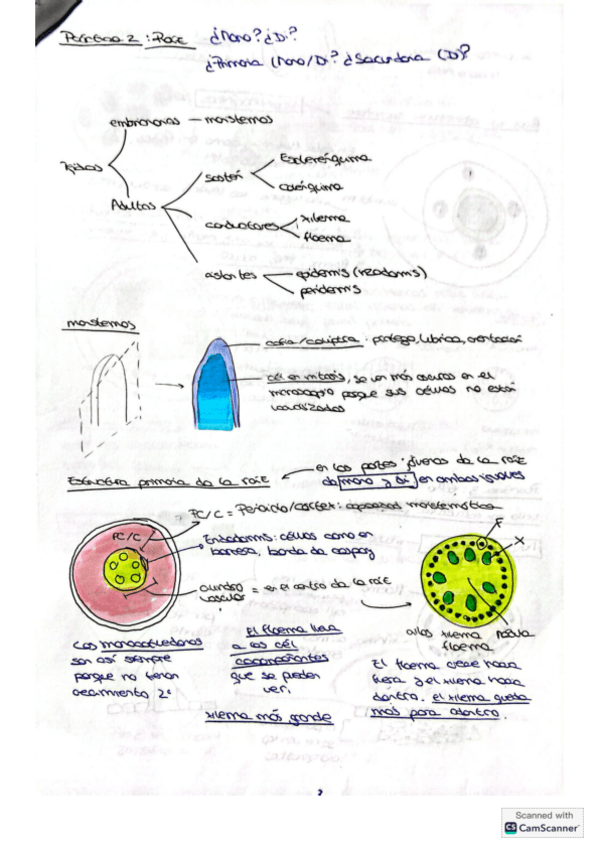 Práctica 2: Raíz ¿Mono? ¿Di?
¿Primaria (Mono/Di? ¿Secundaria (Di)?
embrionarios — meristemos
Tejidos
Adultos
sostén
Esclerénquima
colénquima
conductores
xilema
floema
aislantes
epidermis (rizodermis)
peridermis
meristemos
cofia/caliptra: protege, lubrica, orientación
cél en mitosis, se ven más oscuras en el
microscopio porque sus células no están
vacuolizadas
Estructura primaria de la raíz
en las partes jóvenes de la raíz
de mono y di en ambas iguales
PC/C =
PC/C
Endodermis: células como en
cilindro
vascular
= en el centro de la raíz
F
X
xilema
floema
Las monocotiledoneas
son así siempre
porque no tienen
crecimiento 2º
El floema lleva
a las cél
acompañantes
que se pueden
ver.
xilema más grande
El floema crece hacia
fuera y el xilema hacia
dentro. el xilema queda
más para adentro.
Scanned with
CS CamScanner